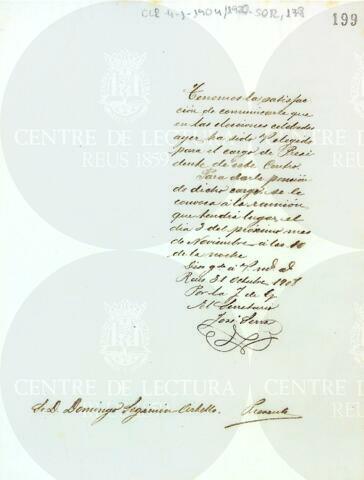 CLR 4-1-1904/1920-SOR, 178
199
Tenemos la satisfac
ción de comunicarle que
en las elecciones celebradas
ayer ha sido Vd. elegido
para el cargo de Presi
dente de este Centro.
Para darle posesión
de dicho cargo se le
convoca á la reunión
que tendrá lugar el
dia 3 del próximo mes
de Noviembre á las 10
de la noche
Dios gde á Vd. ms. as.
Reus 31 Octubre
Por la J. de G.
El Secretario
José Serra
Sr. D. Domingo Segimón Presente
CENTRE DE LECTURA
REUS 1859
CENTRE DE LECTURA
REUS 1859